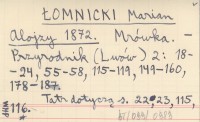 ŁOMNICKI Marian
Alojzy 1872. Mrówka. –
Przyrodnik (Lwów) 2: 18-
-24, 55-58, 115-119, 149-160,
178-187.
Tatr dotyczą s. 22, 23, 115,
116.
WHP